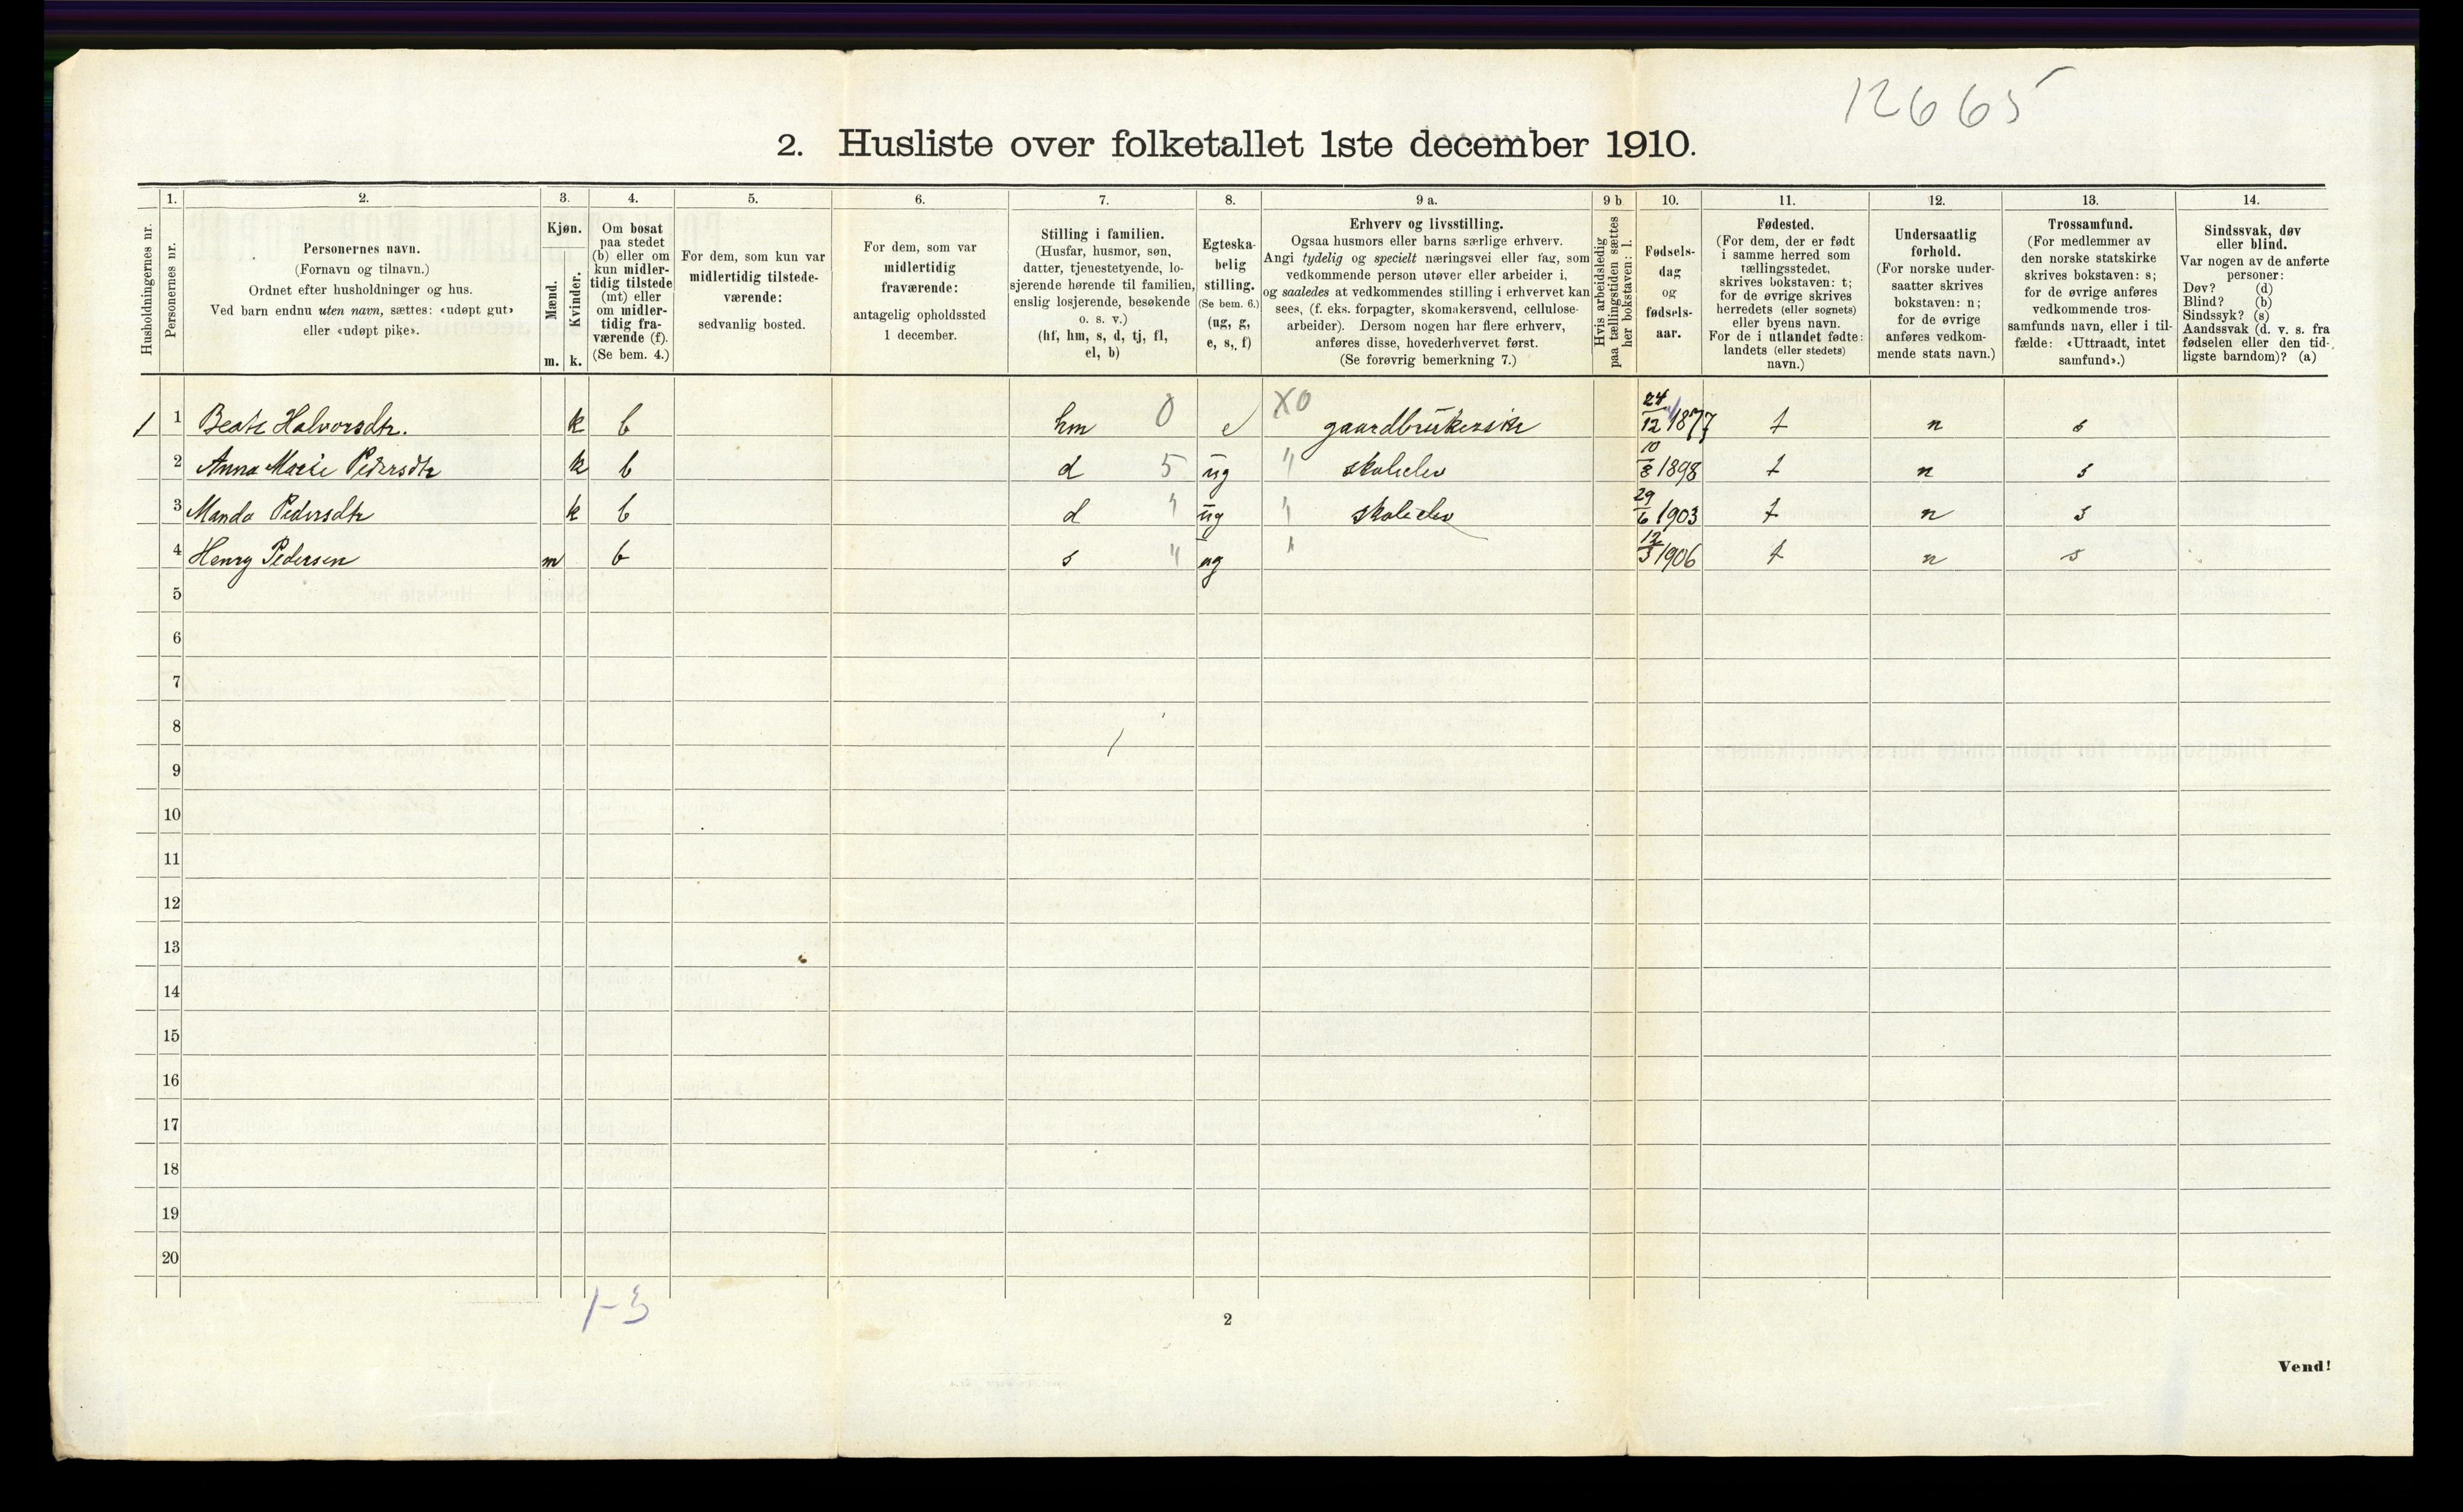 12665
2. Husliste over folketallet 1ste december 1910.
Husholdningernes nr.
1.
Personernes nr.
2.
Personernes navn.
(Fornavn og tilnavn.)
Ordnet efter husholdninger og hus.
Ved barn endnu uten navn, sættes: «udøpt gut»
eller «udøpt pike».
3.
Kjøn.
Mænd.
Kvinder.
m. k.
4.
Om bosat
paa stedet
(b) eller om
kun midler-
tidig tilstede
(mt) eller
om midler-
tidig fra-
værende (f).
(Se bem. 4.)
5.
For dem, som kun var
midlertidig tilstede-
værende:
sedvanlig bosted.
6.
For dem, som var
midlertidig
fraværende:
antagelig opholdssted
1 december.
7.
Stilling i familien.
(Husfar, husmor, søn,
datter, tjenestetyende, lo-
sjerende hørende til familien,
enslig losjerende, besøkende
o. s. v.)
(hf, hm, s, d, tj, fl,
el, b)
8.
Egteska-
belig
stilling.
(Se bem. 6.)
(ug, g,
e, s, f)
9 a.
Erhverv og livsstilling.
Ogsaa husmors eller barns særlige erhverv.
Angi tydelig og specielt næringsvei eller fag, som
vedkommende person utøver eller arbeider i,
og saaledes at vedkommendes stilling i erhvervet kan
sees, (f. eks. forpagter, skomakersvend, cellulose-
arbeider). Dersom nogen har flere erhverv,
anføres disse, hovederhvervet først.
(Se forøvrig bemerkning 7.)
9 b
Hvis arbeidsledig
paa tællingstiden sættes
her bokstaven: l.
10.
Fødsels-
dag
og
fødsels-
aar.
11.
Fødested.
(For dem, der er født
i samme herred som
tællingsstedet,
skrives bokstaven: t;
for de øvrige skrives
herredets (eller sognets)
eller byens navn.
For de i utlandet fødte:
landets (eller stedets)
navn.)
12.
Undersaatlig
forhold.
(For norske under-
saatter skrives
bokstaven: n;
for de øvrige
anføres vedkom-
mende stats navn.)
13.
Trossamfund.
(For medlemmer av
den norske statskirke
skrives bokstaven: s;
for de øvrige anføres
vedkommende tros-
samfunds navn, eller i til-
fælde: «Uttraadt, intet
samfund».)
14.
Sindssvak, døv
eller blind.
Var nogen av de anførte
personer:
Døv? (d)
Blind? (b)
Sindssyk? (s)
Aandssvak (d. v. s. fra
fødselen eller den tid-
ligste barndom)? (a)
1 1 Beate Halvorsdtr. k b hm 0 e X0 gaardbrukerske 24/12 1877 t n s
2 Anna Marie Pedersdtr k b d 5 ug " skoleelev 10/8 1898 t n s
3 Manda Pedersdtr k b d " ug " skoleelev 29/6 1903 t n s
4 Henry Pedersen m b s " ug " 12/3 1906 t n s
5
6
7
8
9
10
11
12
13
14
15
16
17
18
19
20
1-3
2
Vend!